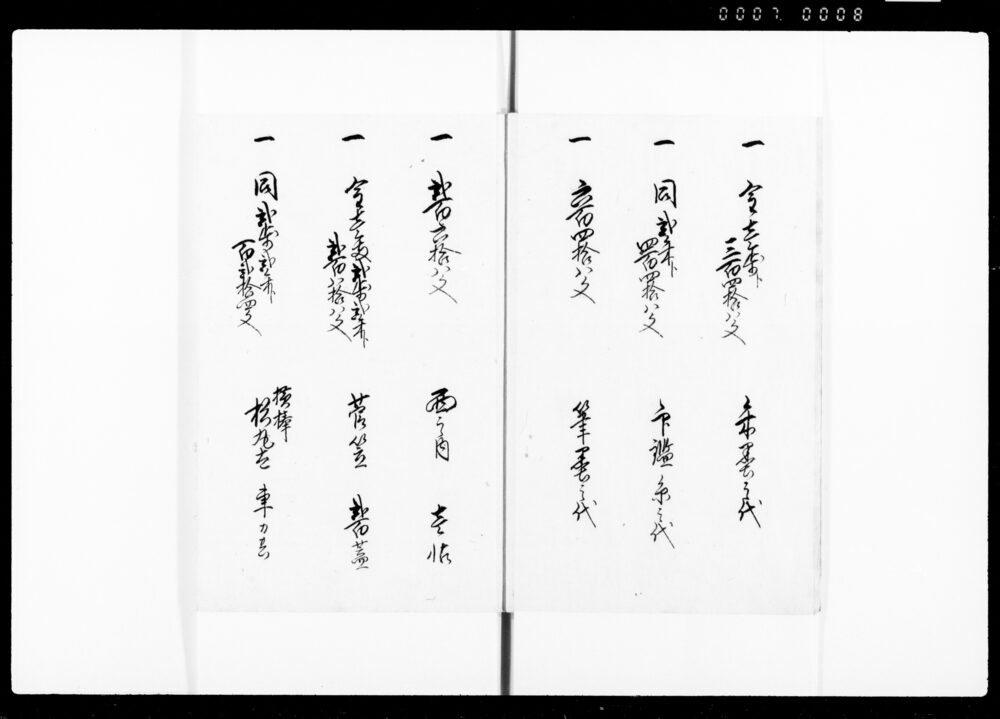 0007 0008
一 金壱歩ト
三百四拾八文 朱墨之代
一 同弐朱ト
四百四拾八文 印鑑糸之代
一 六百四拾八文 筆墨之代
一 弐百六拾八文 西之内 壱帖
一 金壱両弐歩弐朱ト
弐百八拾八文 菅笠 弐百蓋
一 同弐歩弐朱ト
百弐拾四文 横棒
松丸太 車力共